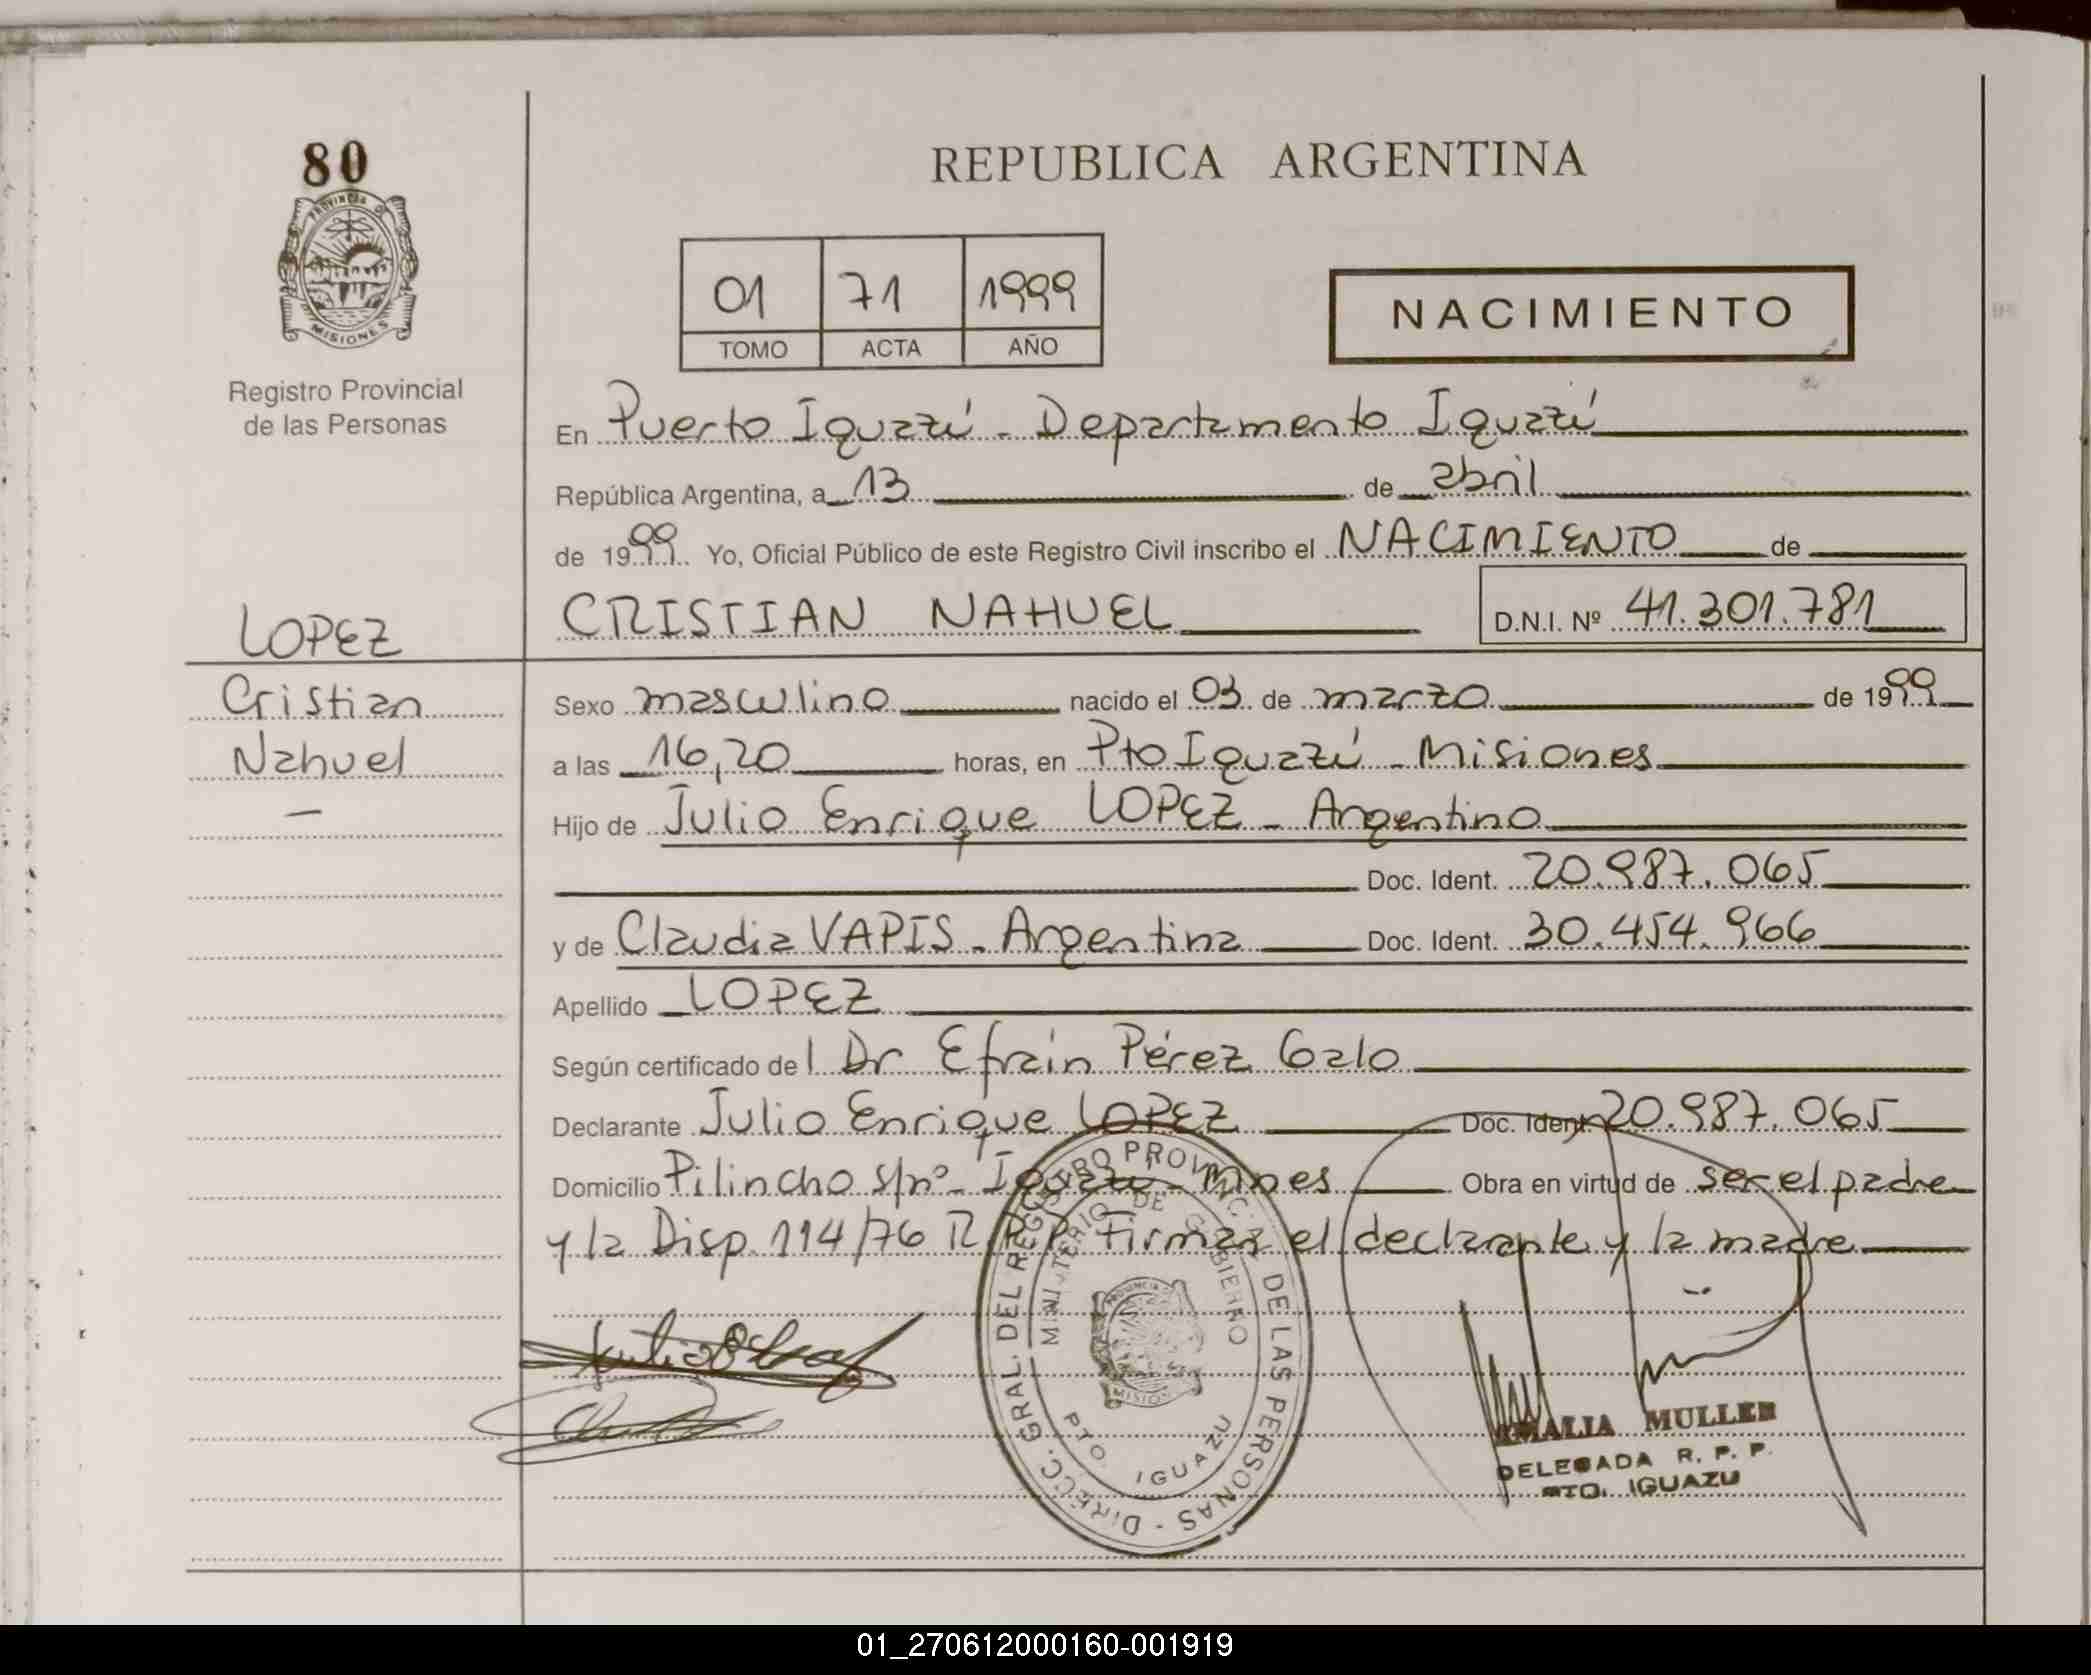 80
PROVINCIA DE
MISIONES
Registro Provincial
de las Personas
REPUBLICA ARGENTINA
01 71 1999
TOMO ACTA AÑO
NACIMIENTO
En Puerto Iguazú - Departamento Iguazú
República Argentina, a 13 de abril
de 1999 Yo, Oficial Público de este Registro Civil inscribo el NACIMIENTO de
LOPEZ
CRISTIAN NAHUEL D.N.I. Nº 41.301.781
Cristian
Nahuel
Sexo masculino nacido el 03 de marzo de 1999
a las 16,20 horas, en Pto Iguazú - Misiones
Hijo de Julio Enrique LOPEZ - Argentino
Doc. Ident. 20.987.065
y de Claudia VAPIS - Argentina Doc. Ident. 30.454.966
Apellido LOPEZ
Según certificado del Dr Efraín Pérez Galo
Declarante Julio Enrique LOPEZ Doc. Ident. 20.987.065
Domicilio Pilincho s/nº - Iguazú - Mnes Obra en virtud de ser el padre
y la Disp. 114/76 R.P.P. Firman el declarante y la madre
DIRECC. GRAL. DEL REGISTRO PROVINCIAL DE LAS PERSONAS -
MINISTERIO DE GOBIERNO
PTO. IGUAZU
AMALIA MULLER
DELEGADA R. P. P.
PTO. IGUAZU
01_270612000160-001919